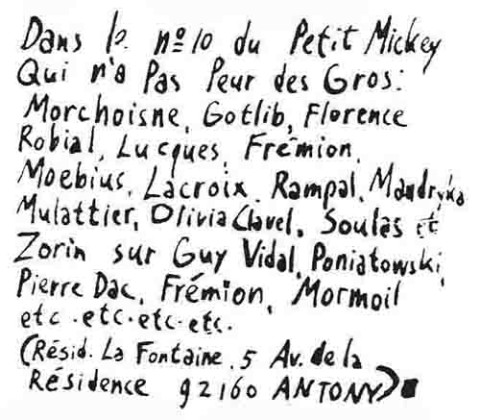 Dans le nº 10 du Petit Mickey
Qui n'a Pas Peur des Gros:
Morchoisne, Gotlib, Florence
Robial, Lucques, Frémion,
Moebius, Lacroix, Rampal, Mandryka
Mulattier, Olivia Clavel, Soulas et
Zorin sur Guy Vidal, Poniatowski,
Pierre Dac, Frémion, Mormoil
etc.etc.etc.etc.
(Résid. La Fontaine. 5 Av. de la
Résidence 92160 ANTONY)